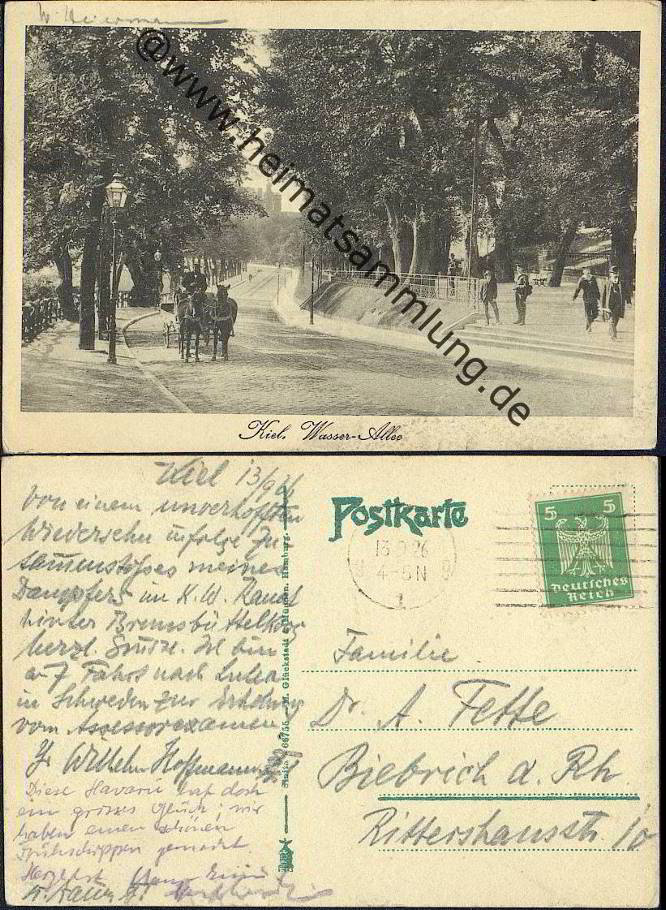 @www.heimatsammlung.de
Kiel. Wasser-Allee
Kiel 13/9 26
Von einem unverhofften
Wiedersehn infolge Zu
sammenstoßes meines
Dampfers im K. W. Kanal
hinter Brunsbüttelkoog
herzl. Grüsse. Ich bin
a. Fahrt nach Lulea
in Schweden zur Erholung
vom Assessorexamen
Ihr Wilhelm Hoffmann
Diese Havarie hat doch
ein grosses Glück; wir
haben einen schönen
Frühschoppen gemacht.
Herzlichst Hans
Postkarte
13.9.26
4-5 N
5 5
Deutsches
Reich
Familie
Dr. A. Fette
Biebrich a. Rh
Rittershausstr. 10
Glückstadt & Münden, Hamburg.